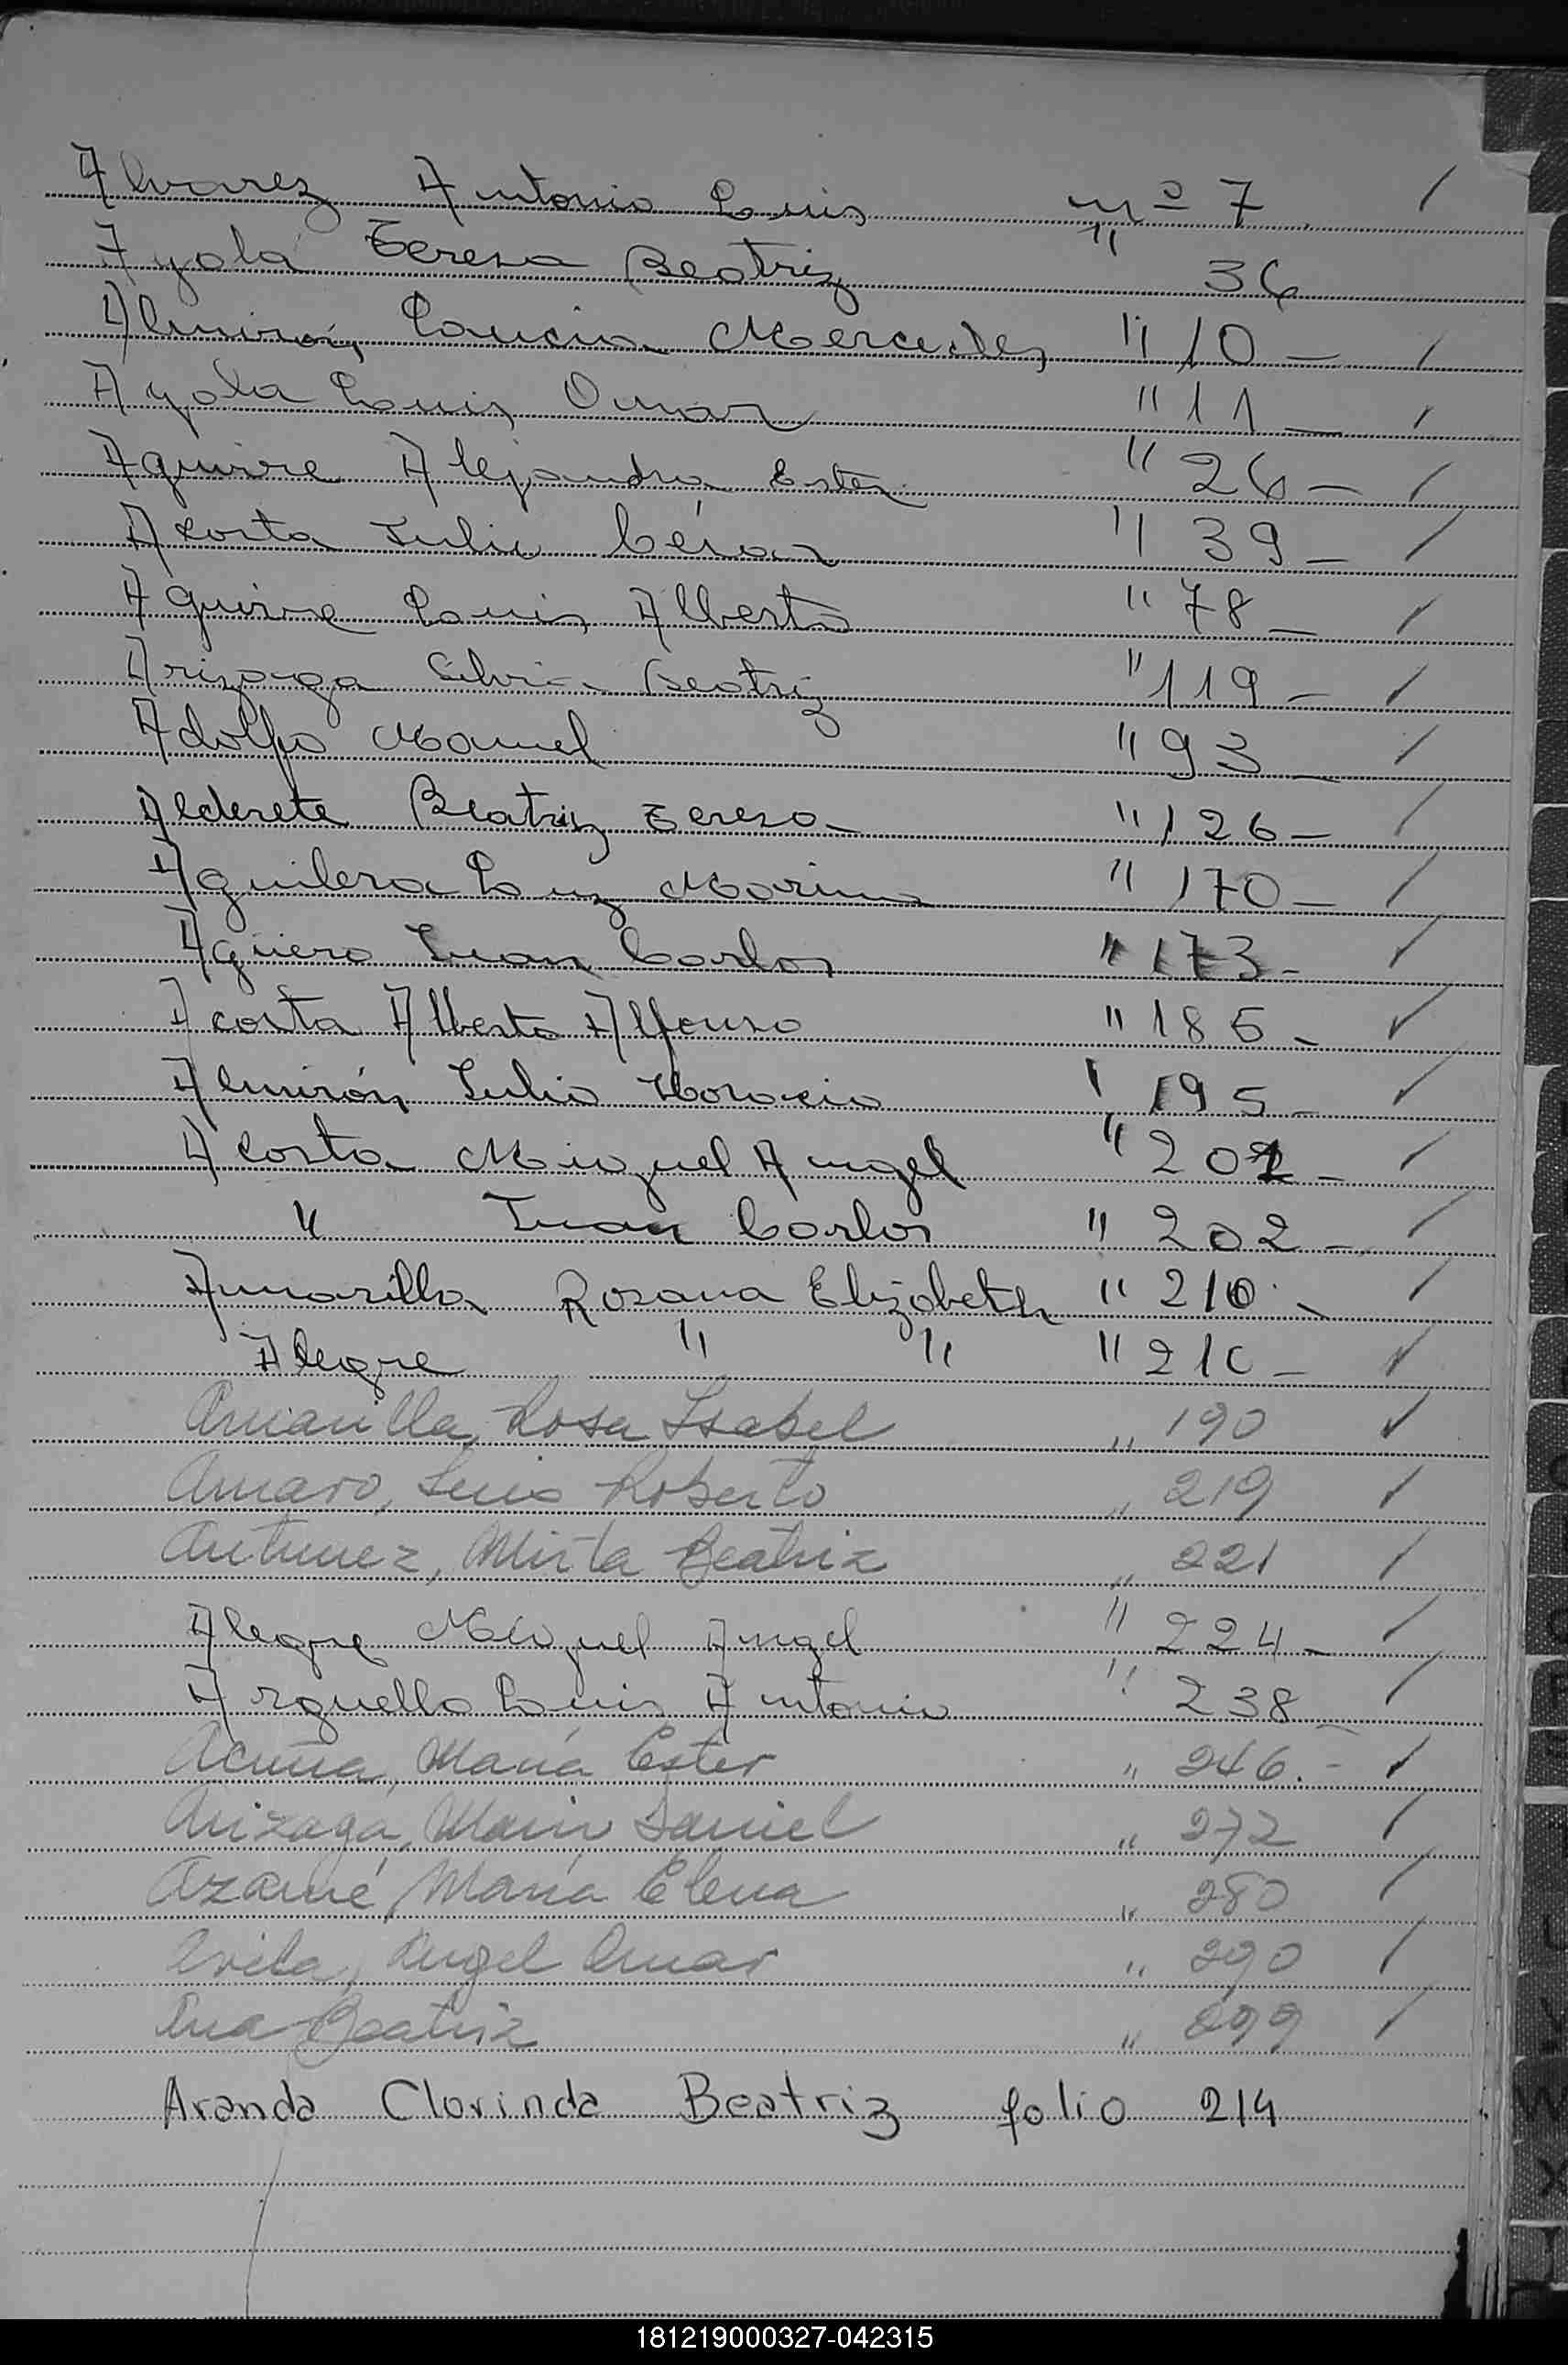 Alvarez Antonio Luis nº 7
Ayala Teresa Beatriz " 36
Almirón, Laucia Mercedes " 10 —
Ayala Louis Omar " 11 —
Aguirre Alejandra Ester " 26 —
Acosta Julio César " 39 —
Aguirre Louis Alberto " 78 —
Arizaga Silvia Beatriz " 119 —
Adolfo Manuel " 93 —
Alderete Beatriz Teresa " 126 —
Aguilera Luz Marina " 170 —
Agüero Juan Carlos " 173 -
Acosta Alberto Alfonso " 186 -
Almirón Julio Horacio " 195 -
Acosta Miguel Angel " 202 -
" Juan Carlos " 202 -
Amarilla Rosana Elizabeth " 210 -
Alegre " " " 210 -
Amarilla, Rosa Isabel " 190
Amaro, Luis Roberto " 219
Antunez, Mirta Beatriz " 221
Alegre Miguel Angel " 224 -
Arguello Luis Antonio " 238
Acuña, María Ester " 246.-
Arizaga, Daniel " 272
Azamé, María Elena " 280
Avila, Angel Omar " 290
Ana Beatriz " 299
Aranda Clorinda Beatriz folio 214
181219000327-042315